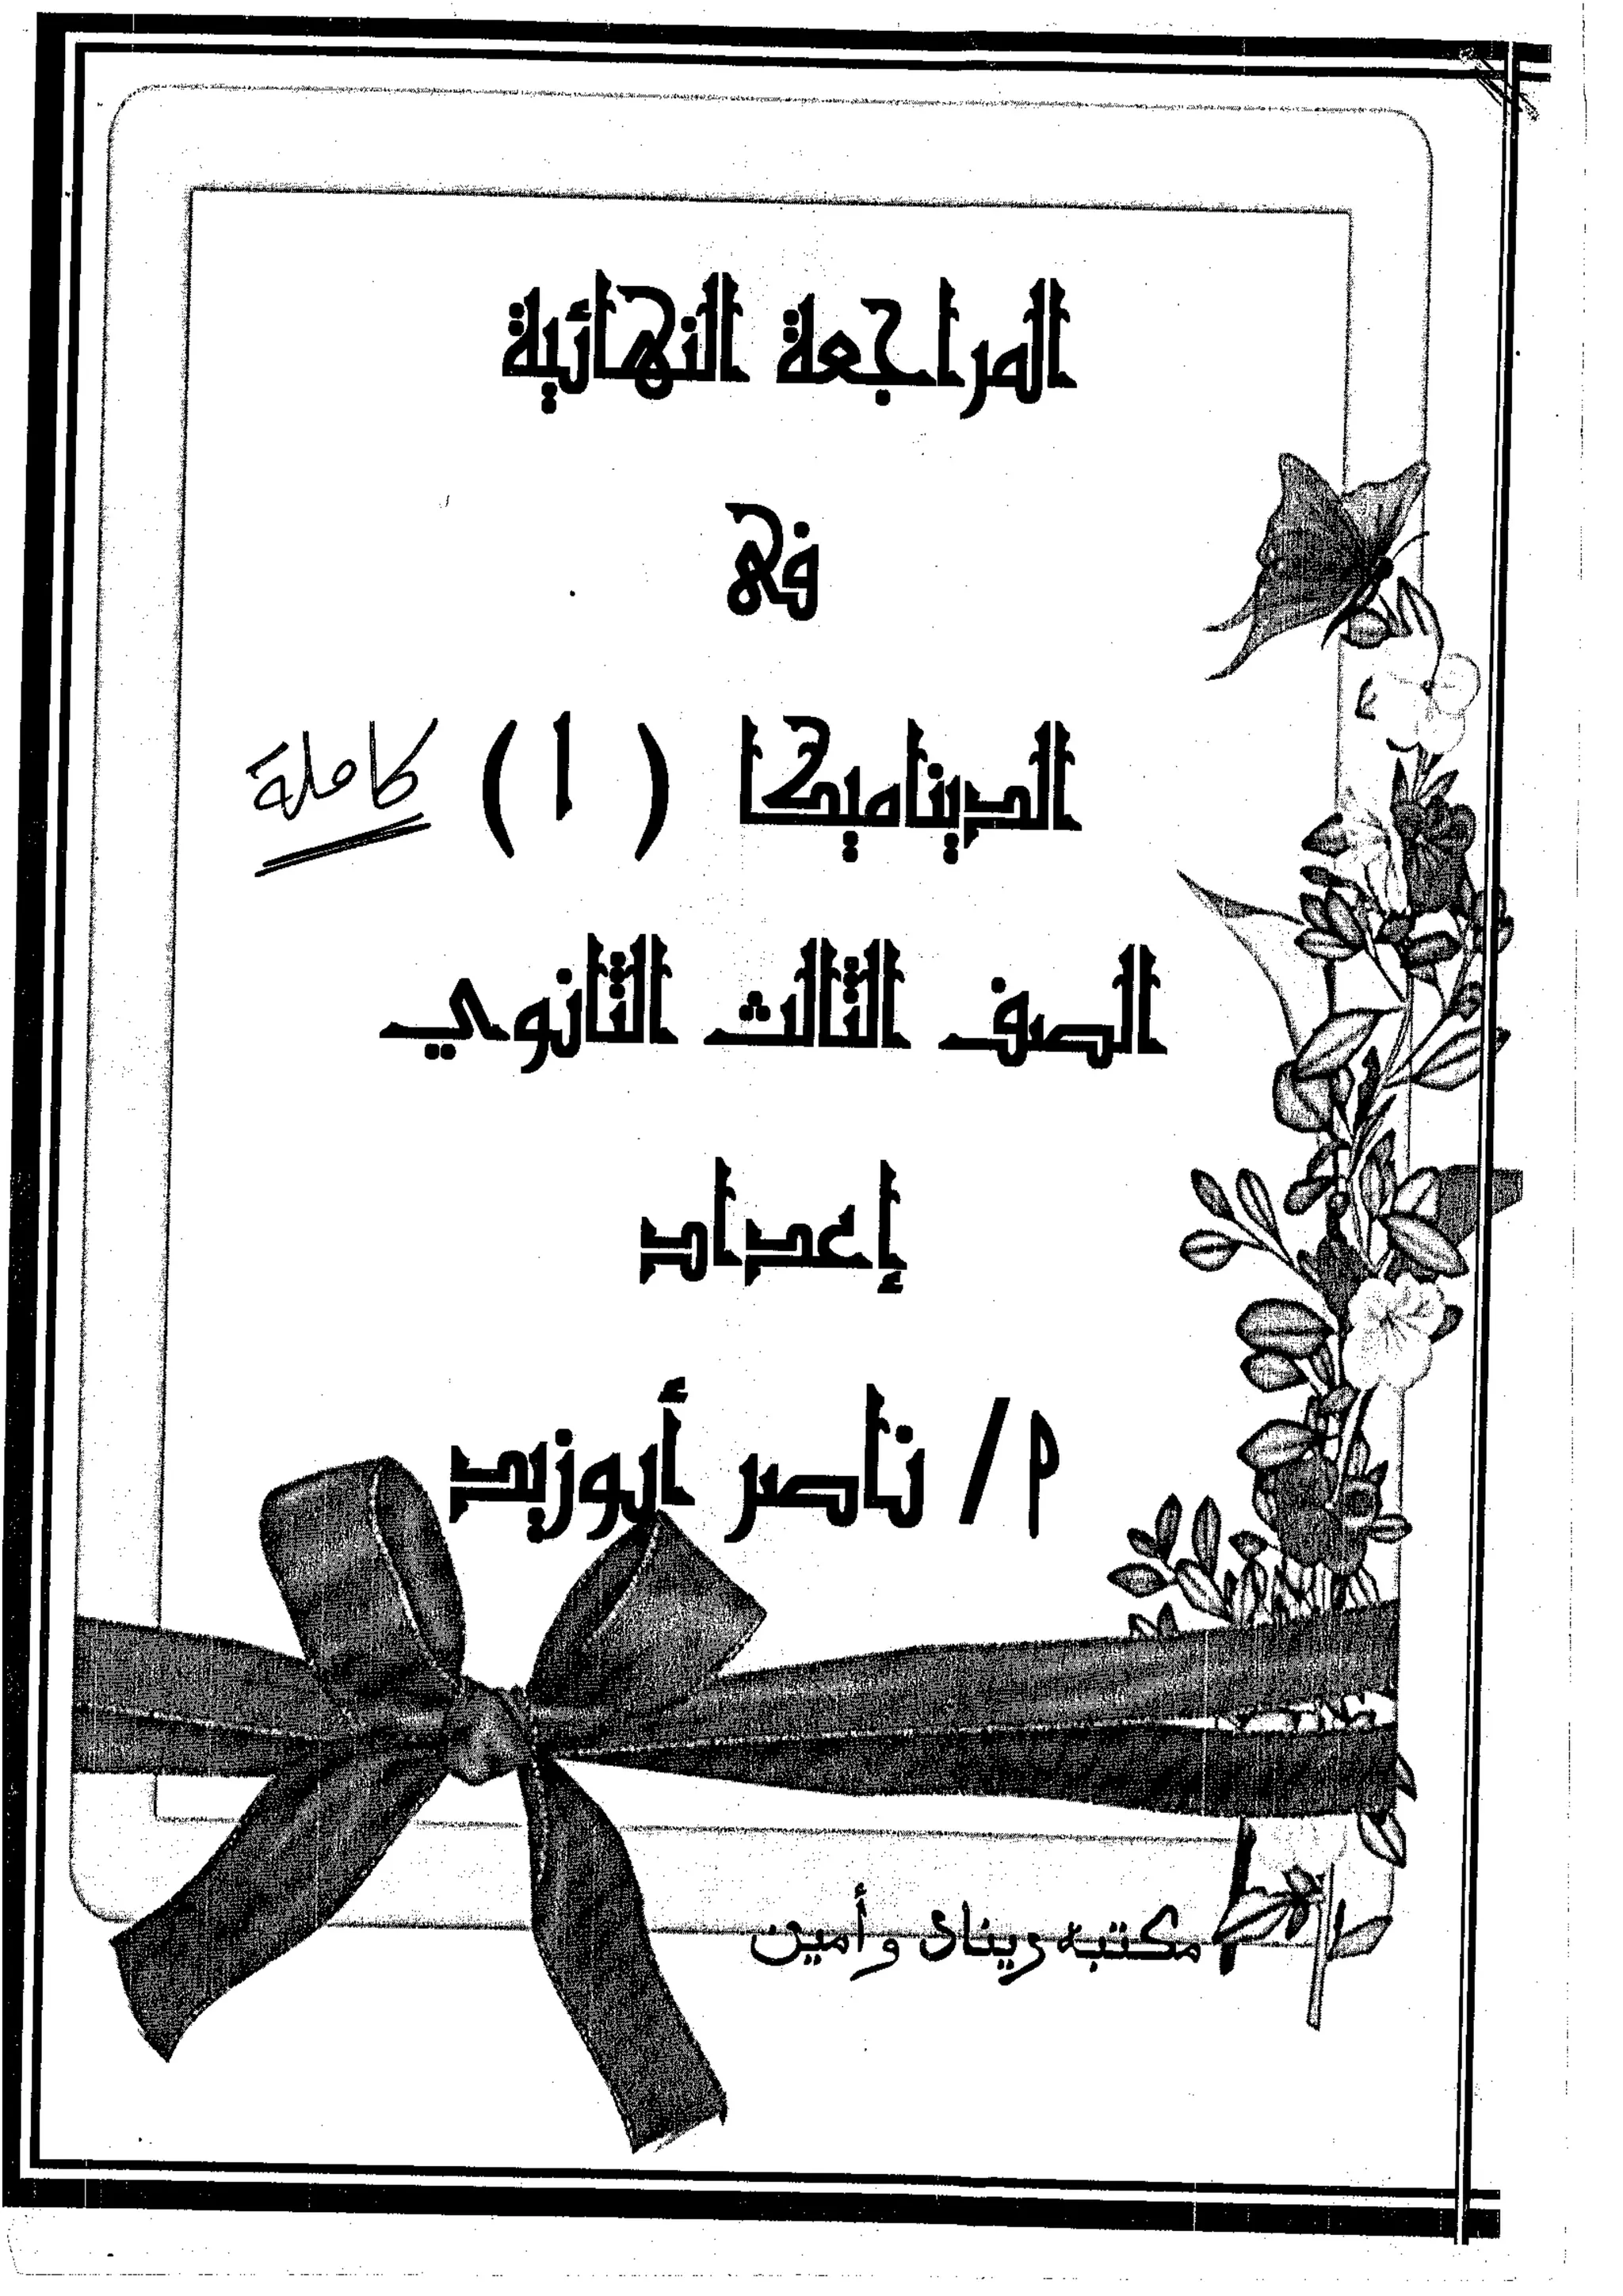 المراجعة النهائية
في
الديناميكا ( ا ) كاملة
الصف الثالث الثانوي
إعداد
م/ ناصر أبوزيد
مكتبه ريناد وأمين